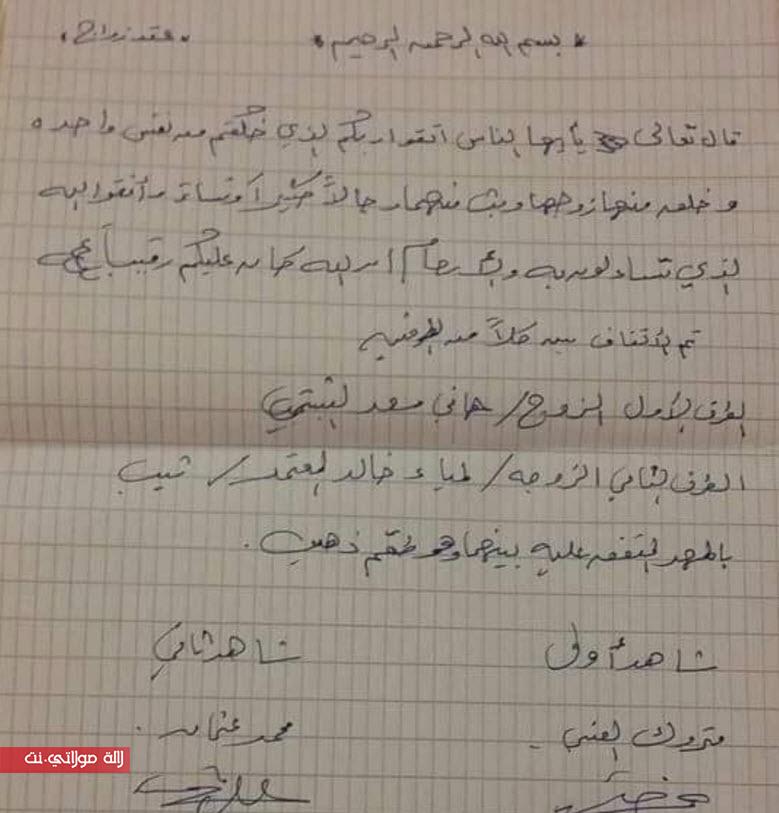 * بسم الله الرحمن الرحيم * • عقد زواج •
قال تعالى يأيها الناس اتقوا ربكم الذي خلقكم من نفس واحده
وخلق منها زوجها وبث منهما رجالاً كثيراً ونساء وأتقوا الله
الذي تتساءلون به والأرحام ان الله كان عليكم رقيباً
تم الأتفاف بين كلاً من الطرفين
الطرف الأول الزوج / هاني سعد
الطرف الثاني الزوجه / لمياء خالد المعتمد / ثيب
بالمهر المتفق عليه بينهما وهو طقم ذهب .
شاهد أول شاهد ثاني
متروك محمد عثمان .
لالة مولاتي.نت